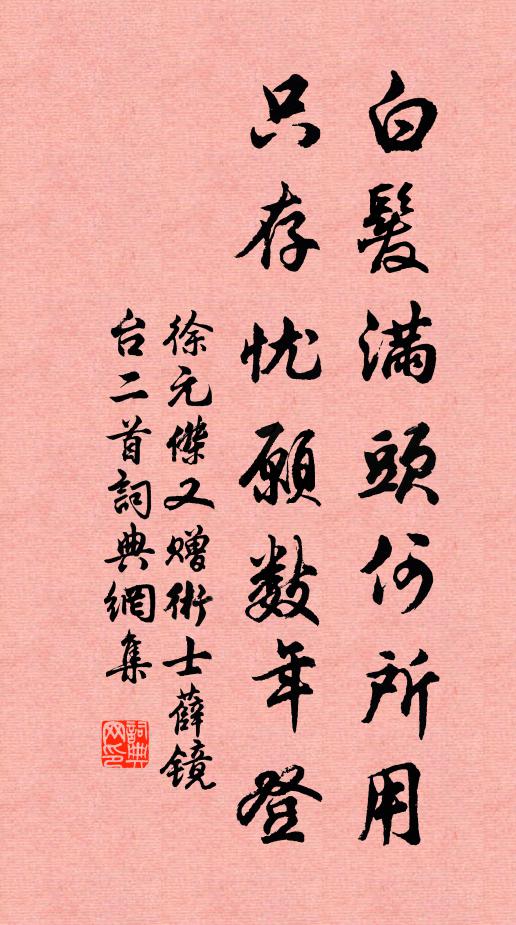 白髮滿頭何所用
只存忧願数年登
徐元傑又贈術士薛鏡
台二首詞典網集
詞典網印